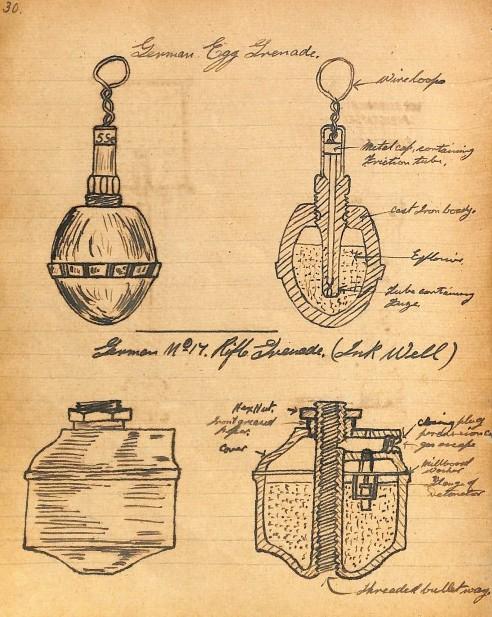 30.
German Egg Grenade.
Wire loops
5Sc
Metal cap, containing
Friction tube.
Cast Iron body.
Explosive
Tube containing
Fuze.
German No 17. Rifle Grenade. (Ink Well)
Hex Nut.
paper.
Cover
Closing plug
gas escape
Millboard
Washer
Flange of
detonator
Threaded bullet way.